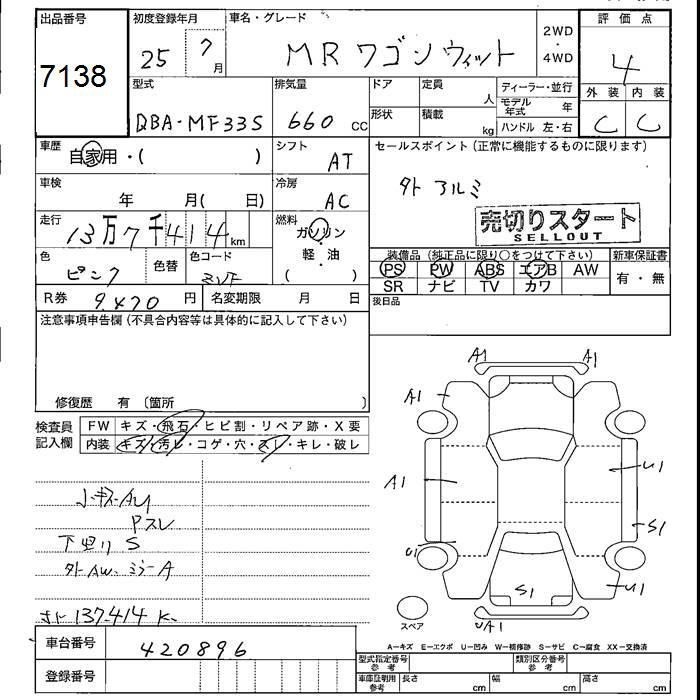 出品番号
7138
初度登録年月
25 7月
車名・グレード
MRワゴン ウィット
2WD
・
4WD
評価点
4
型式
DBA-MF33S
排気量
660 cc
ドア
定員
人
形状
積載
kg
ディーラー・並行
モデル年式 年
ハンドル 左・右
外装 内装
C C
車歴
自家用・( )
シフト
AT
セールスポイント(正常に機能するものに限ります)
外アルミ
売切りスタート
SELLOUT
車検
年 月( 日)
冷房
AC
走行
13万7千414km
燃料
ガソリン
軽・油
( )
色
ピンク
色替
色コード
ZVF
装備品(純正品に限り○をつけて下さい)
新車保証書
PS PW ABS エアB AW
SR ナビ TV カワ
有・無
R券 9,470 円
名変期限 月 日
後日品
注意事項申告欄(不具合内容等は具体的に記入して下さい)
修復歴 有〔箇所 〕
検査員
記入欄
FW キズ・飛石・ヒビ割・リペア跡・X要
内装 キズ・汚レ・コゲ・穴・スレ・キレ・破レ
小キズ・AU
Pスレ
下廻りS
外AW・ミラーA
137,414K
車台番号
420896
登録番号
A1 A1
A1
A1
U1
U1
S1
U1
S1
UA1
スペア
A-キズ E-エクボ U-凹み W-補修跡 S-サビ C-腐食 XX-交換済
型式指定番号
参考
類別区分番号
参考
車庫証明用
参考
長さ cm
幅 cm
高さ cm